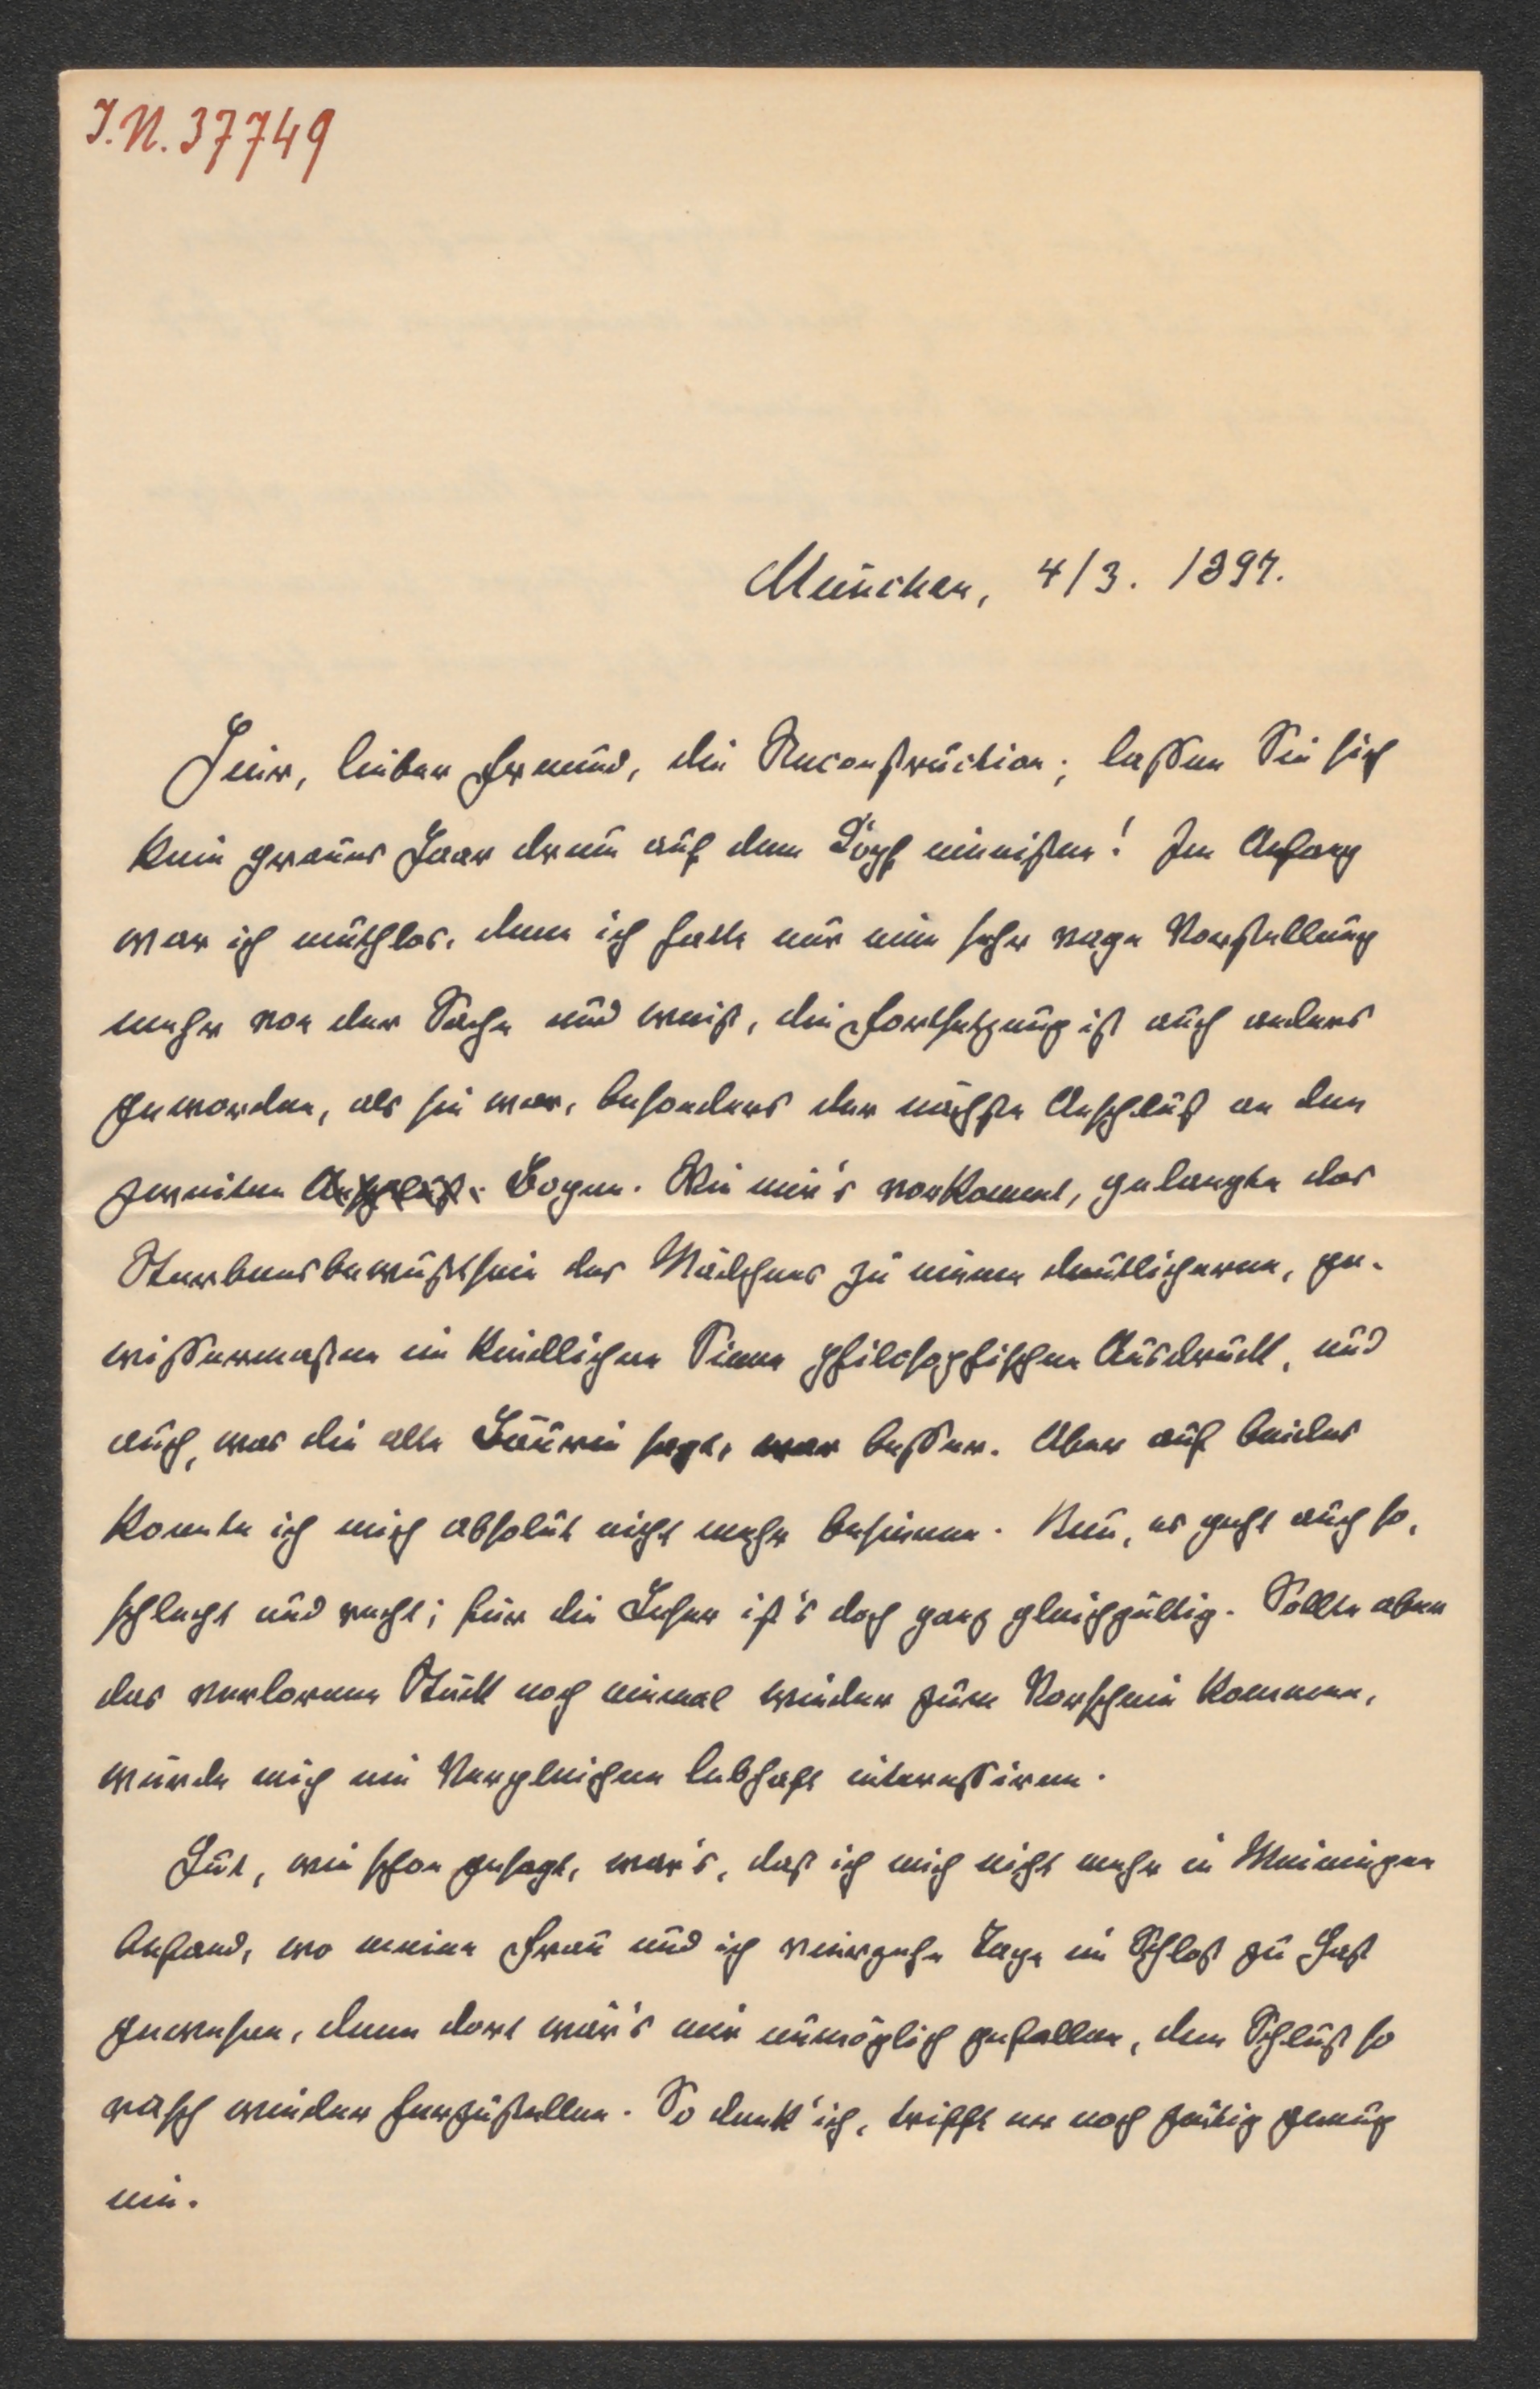 I.N. 37749
München, 4/3. 1897.
Hier, lieber Freund, die Reconstruction; lassen Sie sich
kein graues Haar drein auf dem Kopf einnisten! Im Anfang
war ich muthlos, denn ich hatte nur eine sehr vage Vorstellung
mehr von der Sache und weiß, die Fortsetzung ist auch anders
geworden, als sie war, besonders der nächste Anschluß an den
zweiten Bogen. Wie mir's vorkommt, gelangte das
Sterbensbewußtsein des Mädchens zu einem deutlicheren, ge-
wissermaßen im kindlichen Sinne philosophischen Ausdruck, und
auch, was die alte Bäurin sagt, war besser. Aber auf beides
konnte ich mich absolut nicht mehr besinnen. Nun, es geht auch so,
schlecht und recht; für die Leser ist's doch ganz gleichgültig. Sollte aber
das verlorene Stück noch einmal wieder zum Vorschein kommen,
würde mich ein Vergleichen lebhaft interessiren.
Gut, wie schon gesagt, war's, daß ich mich nicht mehr in Meiningen
befand, wo meine Frau und ich vierzehn Tage im Schloß zu Gast
gewesen, denn dort wär's mir unmöglich gefallen, den Schluß so
rasch wieder herzustellen. So denk' ich, trifft er noch zeitig genug
ein.